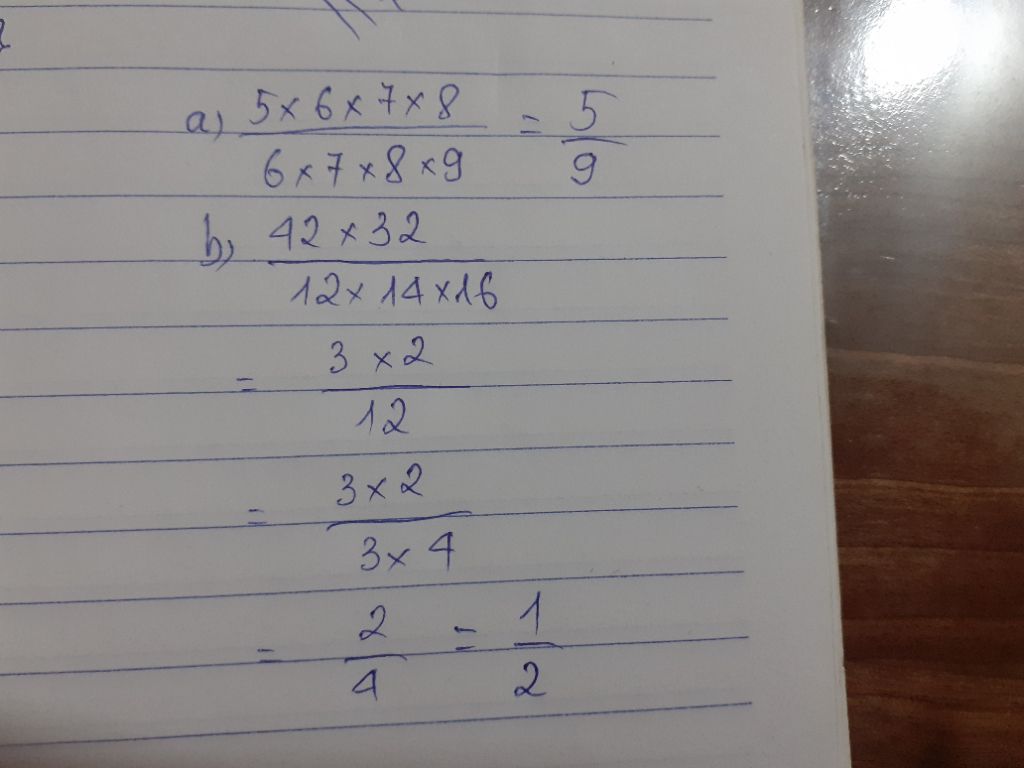 a) 5 × 6 × 7 × 8 / 6 × 7 × 8 × 9 = 5 / 9
b) 42 × 32 / 12 × 14 × 16
= 3 × 2 / 12
= 3 × 2 / 3 × 4
= 2 / 4 = 1 / 2